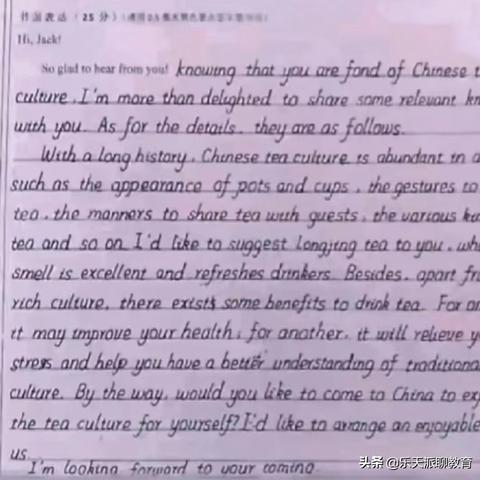 作温表达（25 分）（请用0.5毫米黑色签字笔
Hi, Jack!
So glad to hear from you! knowing that you are fond of Chinese t
culture, I'm more than delighted to share some relevant kn
with you. As for the details, they are as follows.
With a long history, Chinese tea culture is abundant in a
such as the appearance of pots and cups, the gestures to
tea, the manners to share tea with guests, the various k
tea and so on. I'd like to suggest Longjing tea to you, wh
smell is excellent and refreshes drinkers. Besides, apart fr
rich culture, there exists some benefits to drink tea. For on
it may improve your health; for another, it will relieve y
stress and help you have a better understanding of traditional
culture. By the way, would you like to come to China to ex
the tea culture for yourself? I'd like to arrange an enjoyable
us.
I'm looking forward to your coming.
头条 @乐天派聊教育